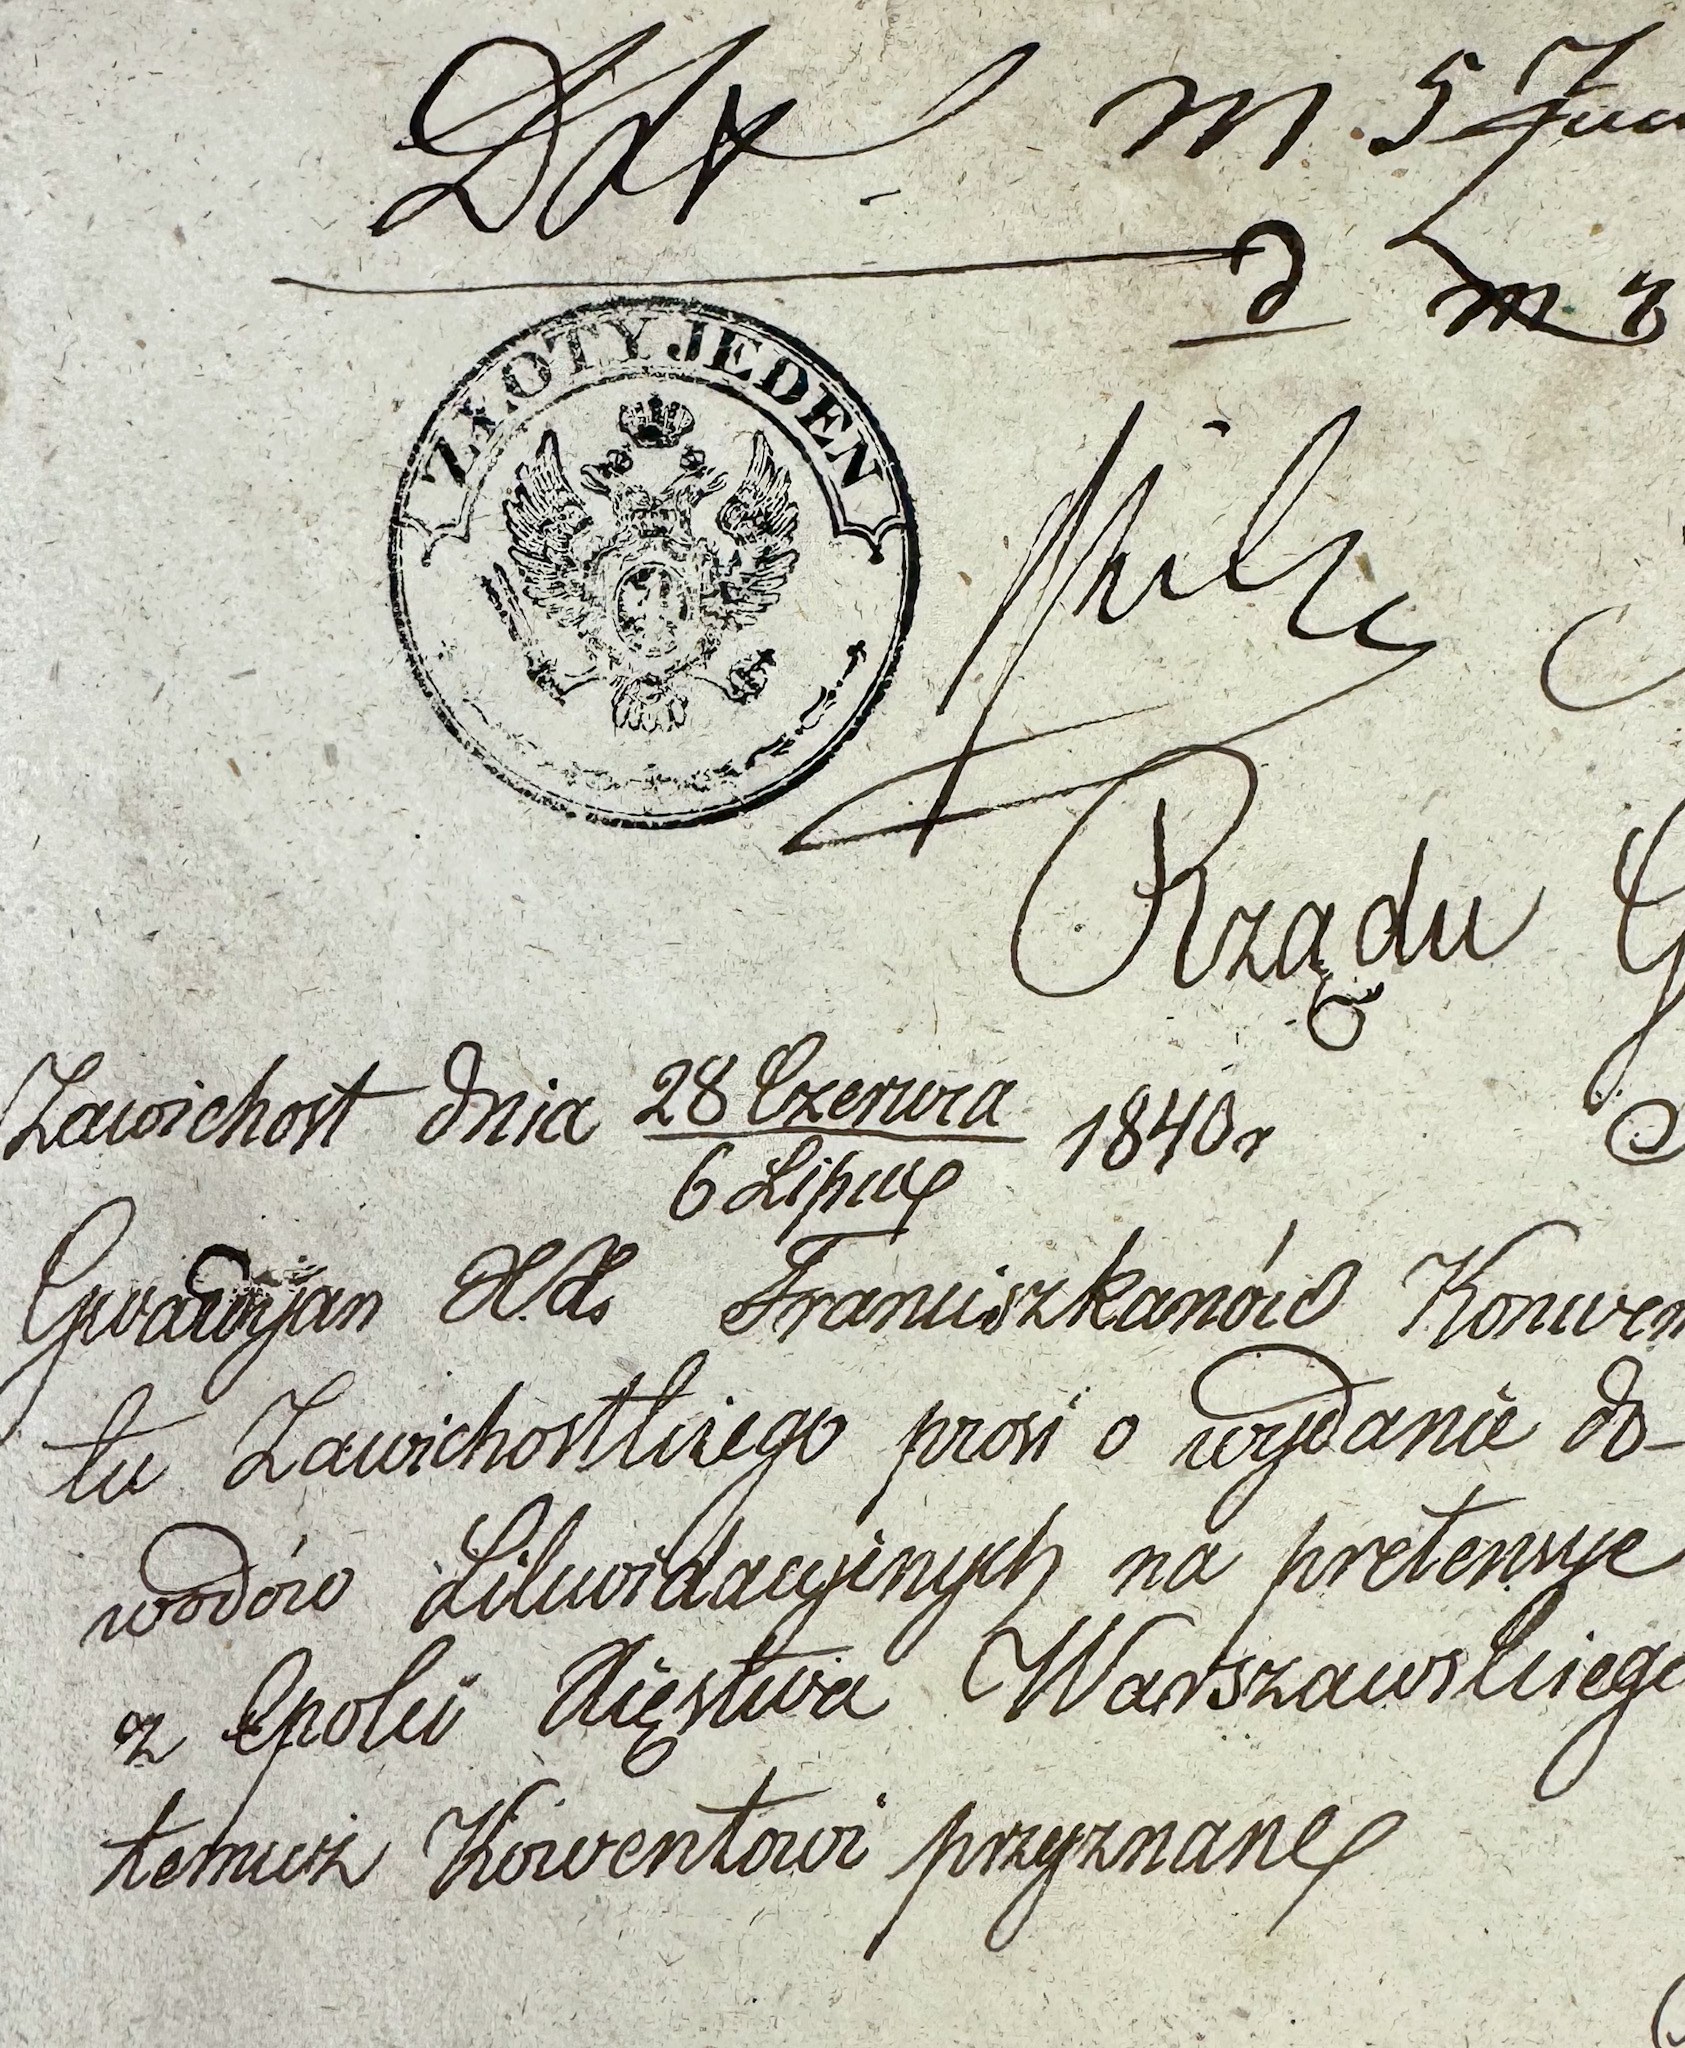 m. 5
ZŁOTY JEDEN
Rządu G
Zawichost dnia 28 Czerwca 1840 r
6 Lipca
Gwardyan XX. Franciszkanów Konwen
tu Zawichostkiego prosi o wydanie do-
wodów Likwidacyjnych na pretensye
z Epoki Xięstwa Warszawskiego
temuż Konwentowi przyznane